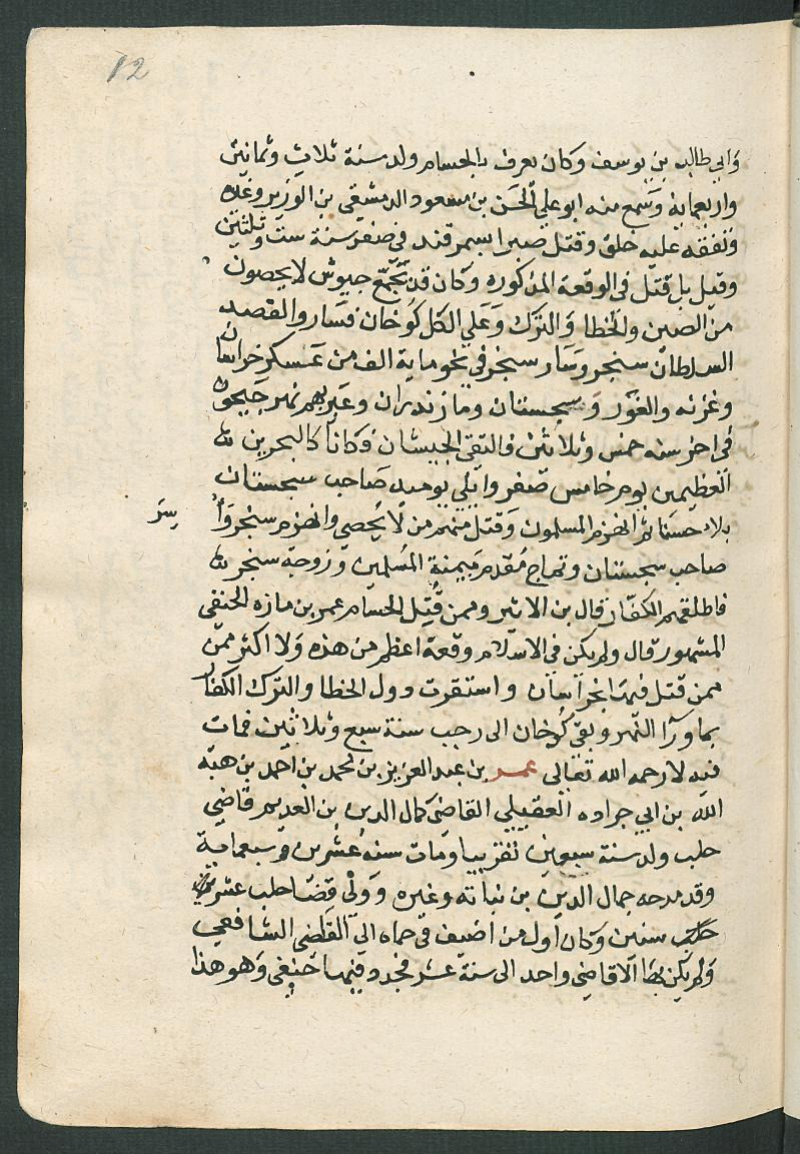 12
وابي طالب بن يوسف وكان يعرف بالحسام ولد سنة ثلاث وثمانين
واربعماية وسمع منه ابو علي الحسن بن مسعود الدمشقي بن الوزير وغيره
وتفقه عليه خلق وقتل صبرا بسمرقند في صفر سنة ست وثلثين
وقيل بل قتل في الوقعة المذكوره وكان قد تجمع جيوش لا يحصون
من الصين والخطا والترك وعلي الكل كوخان فساروا لقصد
السلطان سنجر وسار سنجر في نحو ماية الف من عسكر خراسان
وغزنه والغور وسجستان ومازندران وعبر بهم نهر جيحون
في اخر سنه خمس وثلاثين فالتقي الجيشان فكانا كالبحرين
العظيمين يوم خامس صفر وابلي يوميذ صاحب سجستان
بلاء حسنا ثم انهزم المسلمون وقتل منهم من لا يحصي وانهزم سنجر وا
سر
صاحب سجستان وقماج مقدم ميمنة المسلمين وزوجة سنجر
فاطلقهم الكفار قال بن الاثير وممن قتل الحسام عمر بن مازه الحنفي
المشهور قال ولم يكن في الاسلام وقعة اعظم من هذه ولا اكثر ممن
ممن قتل فيها بخراسان واستقرت دول الخطا والترك الكفار
بما ورآ النهر وبقي كوخان الى رجب سنة سبع وثلاثين فمات
فيه لا رحمه الله تعالى عمر بن عبد العزيز بن محمد بن احمد بن هبه
الله بن ابي جراده العقيلي القاضى كمال الدين بن العديم قاضي
حلب ولد سنة سبعين تقريبا ومات سنه عشرين وسبعماية
وقد مدحه جمال الدين بن نباته وغيره وولي قضا حلب عشر
سنين وكان اول من اضيف في حماه الى القاضي الشافعي
ولم يكن بها الا قاضي واحد الى سنة عشر فجدد فيها حنفي وهو هذا